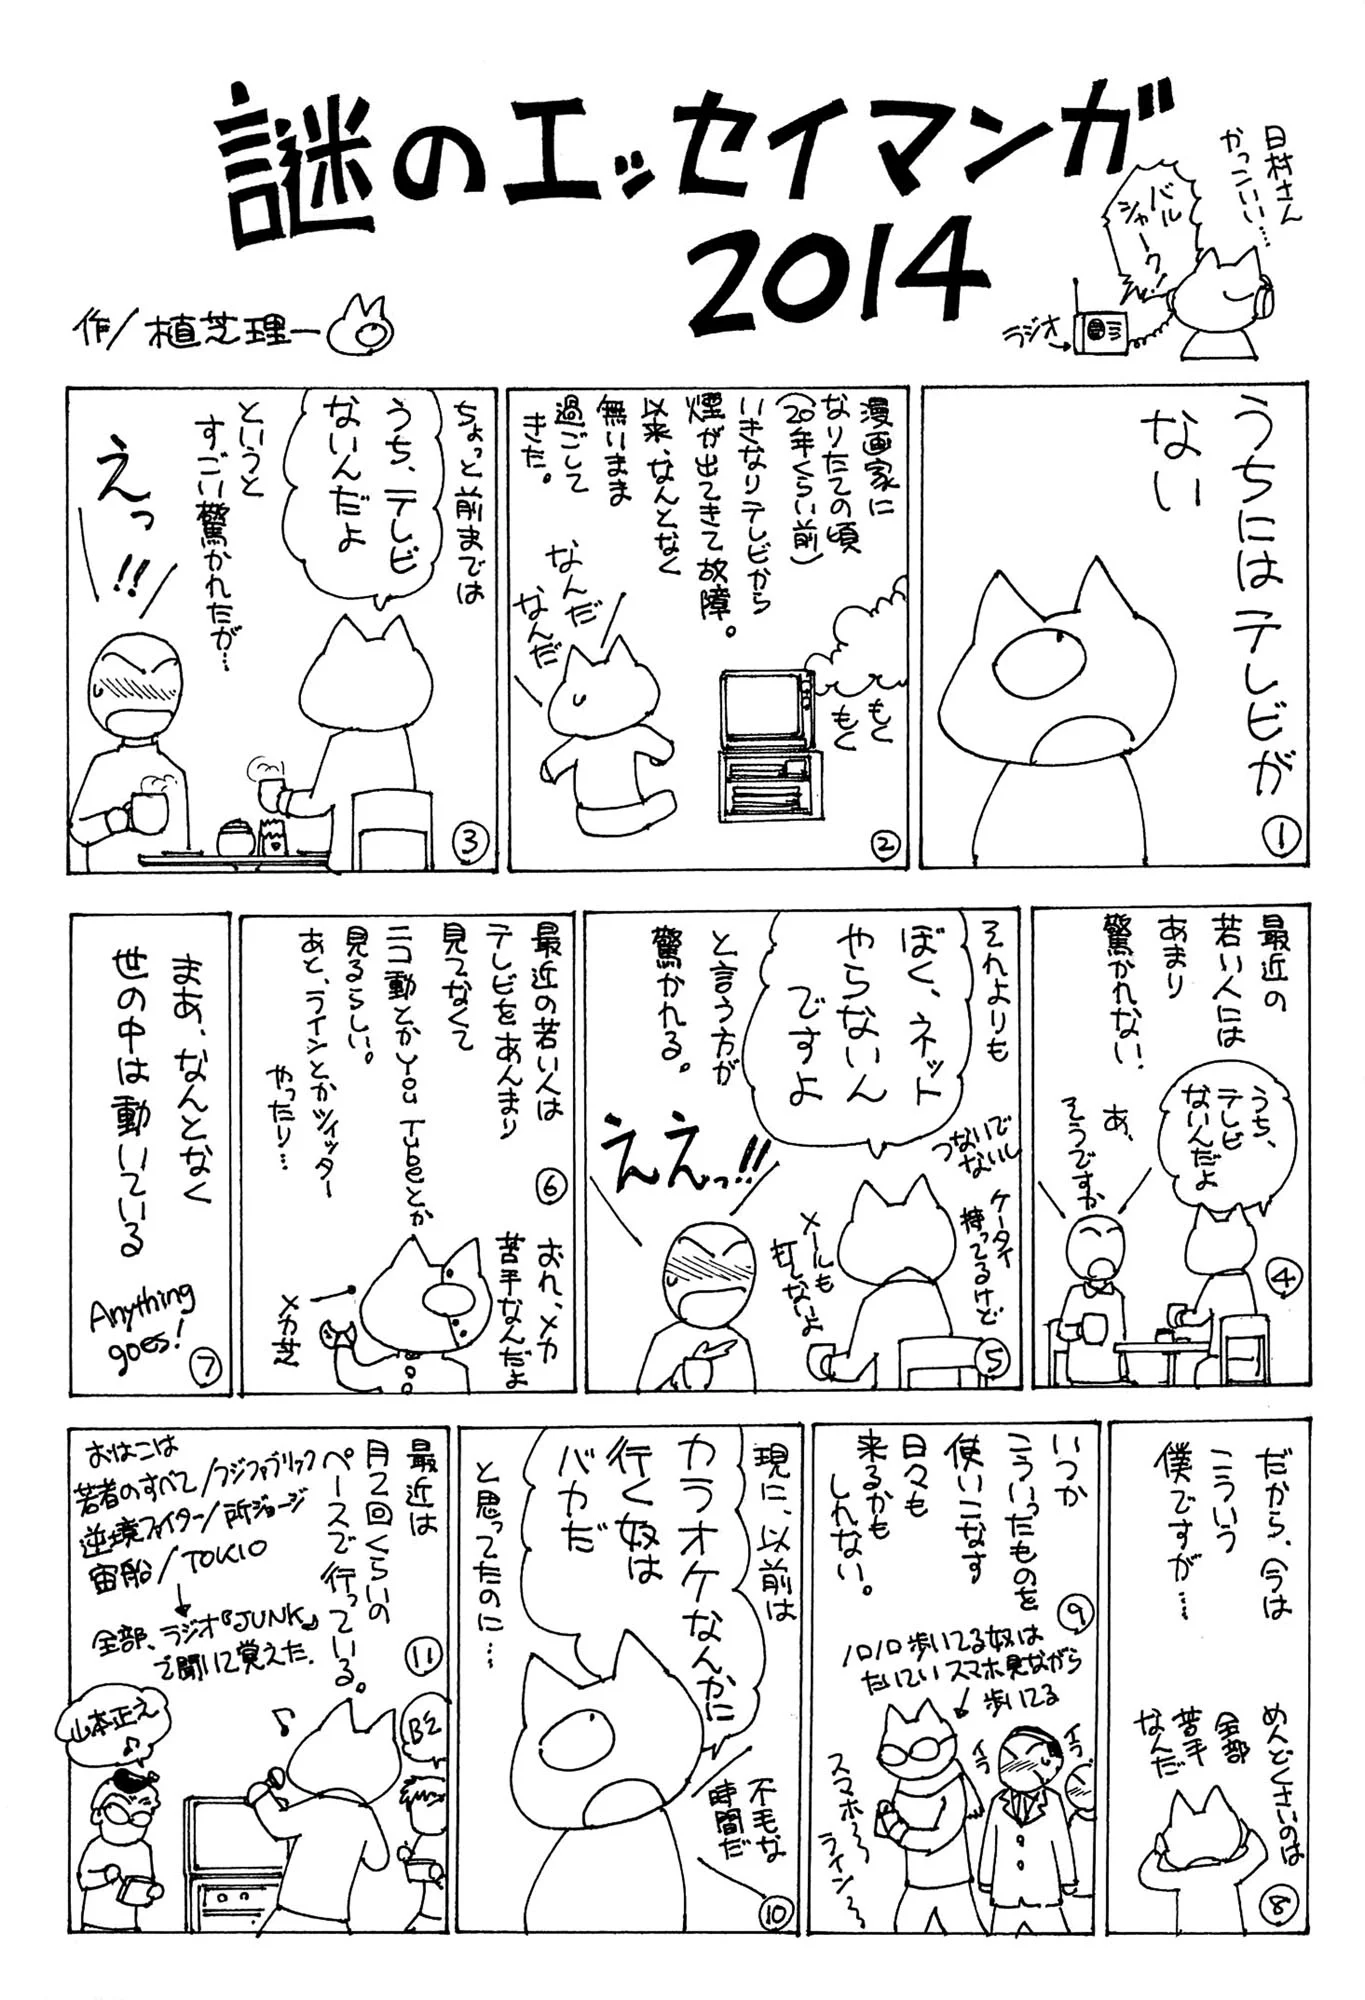 謎のエッセイマンガ
2014
作/植芝理一
日村さん
かっこいい…
バル
シャーク!
ラジオ
うちにはテレビが
ない
①
漫画家に
なりたての頃
(20年くらい前)
いきなりテレビから
煙が出てきて故障。
以来、なんとなく
無いまま
過ごして
きた。
なんだ
なんだ
もく
もく
②
ちょっと前までは
うち、テレビ
ないんだよ
というと
すごい驚かれたが…
えっ!!
③
最近の
若い人には
あまり
驚かれない。
うち、
テレビ
ないんだよ
あ、
そうですか
④
それよりも
ぼく、ネット
やらないん
ですよ
と言う方が
驚かれる。
ええっ!!
つないで
ないし
ケータイ
持ってるけど
メールも
打てないよ
⑤
最近の若い人は
テレビをあんまり
見てなくて
ニコ動とかYou Tubeとか
見るらしい。
あと、ラインとかツイッター
やったり…
⑥
おれ、メカ
苦手なんだよ
メカ芝
まあ、なんとなく
世の中は動いている
Anything
goes!
⑦
だから、今は
こういう
僕ですが…
めんどくさいのは
全部
苦手
なんだ
⑧
いつか
こういったものを
使いこなす
日々も
来るかも
しれない。
⑨
ノロノロ歩いてる奴は
たいていスマホ見ながら
歩いてる
イラ
イラ
スマホ〜
ライン〜
現に、以前は
カラオケなんかに
行く奴は
バカだ
と思ってたのに…
不毛な
時間だ
⑩
最近は
月2回くらいの
ペースで行っている。
おはこは
若者のすべて/フジファブリック
逆境ファイター/所ジョージ
宙船/TOKIO
全部、ラジオ『JUNK』
で聞いて覚えた。
⑪
山本正之
B'z